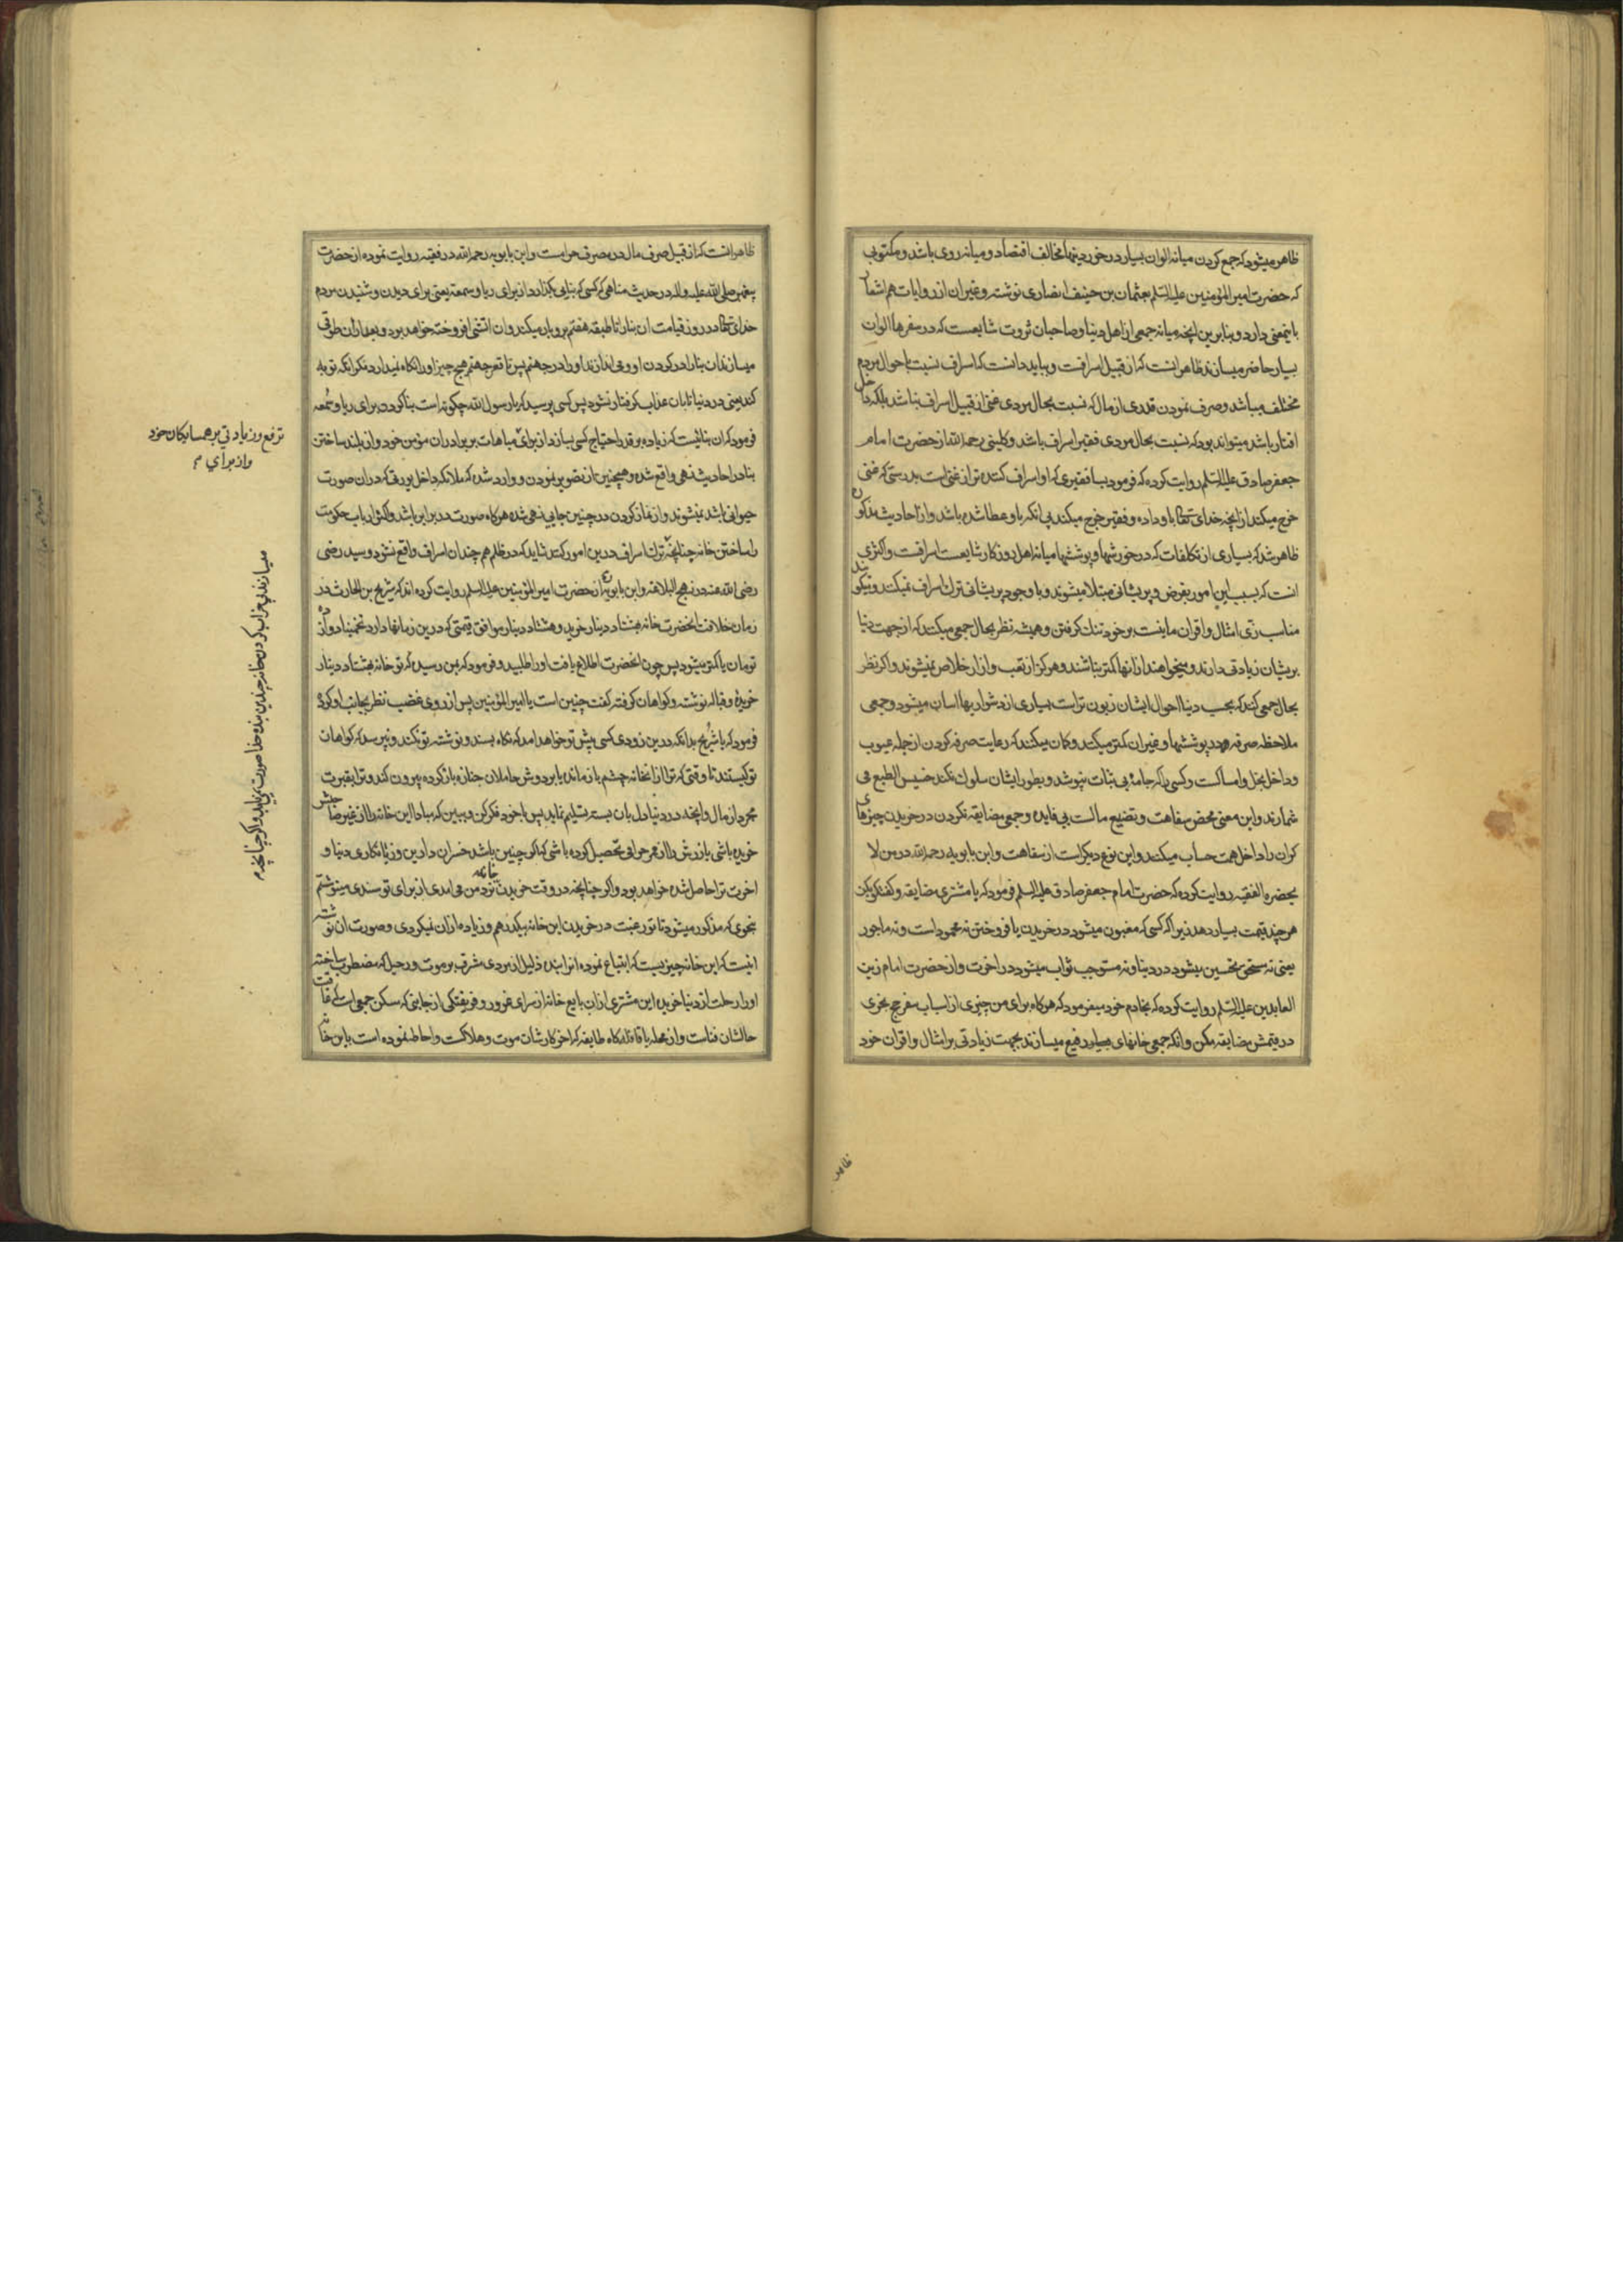 ظاهر میشود که جمع کردن میانه الوان بسیار در خوردنیها مخالف اقتصاد و میانه روی باشد و مکتوبی
که حضرت امیر المؤمنین علیه السلم بعثمان بن حنیف انصاری نوشته و غیر ان از روایات هم اشعار
باینمعنی دارد و بنابرین انچه میانه جمعی از اهل دنیا و صاحبان ثروت شایعست که در سفرها الوان
بسیار حاضر میسازند ظاهر انست که از قبیل اسرافست و بباید دانست که اسراف نسبت باحوال مردم
مختلف میباشد و صرف نمودن قدری از مال که نسبت بحال مردی غنی از قبیل اسراف نباشد بلکه داخل
اقتار باشد میتواند بود که نسبت بحال مردی فقیر اسراف باشد و کلینی رحمه الله از حضرت امام
جعفر صادق علیه السلم روایت کرده که فرمود بسا فقیری که او اسراف کننده تر از غنی است بدرستی که غنی
خرج میکند از انچه خدای تعالی باو داده و فقیر خرج میکند بی انکه باو عطا شده باشد و از احادیث مذکوره
ظاهر شد که بسیاری از تکلفات که در خورشها و پوششها میانه اهل روزکار شایعست اسرافست و اکثری
انست که بسبب این امور بقرض و پریشانی مبتلا میشوند و با وجود پریشانی ترک اسراف نمیکنند و میکویند
مناسب زی امثال و اقران ما نیست بر خود تنک کرفتن و همیشه نظر بحال جمعی میکنند که از جهت دنیا
بریشان زیادتی دارند و میخواهند از انها کمتر نباشند و هرکز از تعب و ازار خلاص نمیشوند و اکر نظر
بحال جمعی کنند که بحسب دنیا احوال ایشان زبون تر است بسیاری از دشواریها اسان میشود و جمعی
ملاحظه صرفه در پوششها و غیر ان کمتر میکنند و کمان میکنند که رعایت صرفه کردن از جمله عیوب
و داخل بخل و امساکست و کسی را که جامهٔ بی ثبات نپوشد و بطور ایشان سلوک نکند خسیس الطبع می
شمارند و این معنی محض سفاهت و تضییع مالست بی فایده و جمعی مضایقه نکردن در خریدن چیزهای
کران را داخل همت حساب میکنند و این نوع دیکر است از سفاهت و ابن بابویه رحمه الله در من لا
یحضره الفقیه روایت کرده که حضرت امام جعفر صادق علیه السلم فرمود که با مشتری مضایقه و کفتکو بکن
هر چند قیمت بسیار دهد زیرا که کسی که مغبون میشود در خریدن یا فروختن نه محمود است و نه ماجور
یعنی نه مستحق تحسین میشود در دنیا و نه مستوجب ثواب میشود در اخرت و از حضرت امام زین
العابدین علیه السلم روایت کرده که بخادم خود میفرمود که هرکاه برای من چیزی از اسباب سفر حج بخری
در قیمتش مضایقه مکن و انکه جمعی خانهای بسیار رفیع میسازند بجهت زیادتی بر امثال و اقران خود
ظاهر
ظاهر انست که از قبیل صرف مال در مصرف حرامست و ابن بابویه رحمه الله در فقیه روایت نموده از حضرت
پیغمبر صلی الله علیه و اله در حدیث مناهی که کسی که بنایی بکذارد از برای ریا و سمعه یعنی برای دیدن و شنیدن مردم
خدای تعالی در روز قیامت ان بنا را تا طبقه هفتم برو بار میکند و ان اتشی افروخته خواهد بود و بعد از ان طوقی
میسازند ان بنا را در کردن او و می اندازند او را در جهنم پس تا قعر جهنم هیچ چیز او را نکاه نمیدارد مکر انکه توبه
کند یعنی در دنیا تا بان عذاب کرفتار نشود پس کسی پرسید که یا رسول الله چکونه است بنا کردن برای ریا و سمعه
فرمود که ان بنائیست که زیاده بر قدر احتیاج کسی بسازد از برای مباهات بر برادران مؤمن خود و از بلند ساختن
بنا در احادیث نهی واقع شده و همچنین از تصویر نمودن و وارد شده که ملائکه داخل بیوتی که در ان صورت
حیوانی باشد نمیشوند و از نماز کردن در چنین جایی نهی شده هرکاه صورت در برابر باشد و اکثر ارباب حکومت
را ساختن خانه چنانچه ترک اسراف درین امور کنند شاید که در ظلم هم چندان اسراف واقع نشود و سید رضی
رضی الله عنه در نهج البلاغه و ابن بابویه از حضرت امیر المؤمنین علیه السلم روایت کرده اند که شریح بن الحارث در
زمان خلافت انحضرت خانه بهشتاد دینار خرید و هشتاد دینار موافق قیمتی که درین زمانها دارد تخمینا دوازده
تومان یا کمتر میشود پس چون انحضرت اطلاع یافت او را طلبید و فرمود که بمن رسیده که تو خانه بهشتاد دینار
خریدهٔ و قباله نوشته و کواهان کرفته کفت چنین است یا امیر المؤمنین پس از روی غضب نظر بجانب او کرد
فرمود که یا شریح بدانکه درین زودی کسی پیش تو خواهد امد که نکاه بسند و نوشته تو نکند و نپرسد که کواهان
تو کیستند تا وقتی که ترا از انخانه چشم باز مانده یا بر دوش حاملان جنازه بار کرده بیرون کند و ترا بقبرت
مجرد از مال و انچه در دنیا دل بان بسته تسلیم نماید پس با خود فکر کن و ببین که مبادا این خانه را از غیر صاحبش
خریده باشی یا زرش را از ممر حرامی تحصیل کرده باشی که اکر چنین باشد خسران دارین و زیانکاری دنیا و
اخرت ترا حاصل شده خواهد بود و اکر چنانچه در وقت خریدن خانه نزد من می امدی از برای تو سندی مینوشتم
بنحوی که مذکور میشود تا تو رغبت در خریدن این خانه بیکدرهم و زیاده از ان نمیکردی و صورت ان نوشته
اینست که این خانه چیزیست که ابتیاع نموده انرا بنده ذلیل از مردی مشرف بر موت و رحیل که مضطرب ساخته
او را رحلت از دنیا خریده این مشتری از ان بایع خانه از سرای غرور و فریفتکی از جانبی که سکن جمعی است که عاقبت
حالشان فناست و از محله یا قافله کاه طایفه که اخر کارشان موت و هلاکست و احاطه نموده است باین خانه
ترفع و زیادتی بر همسایکان خود
و از برای م